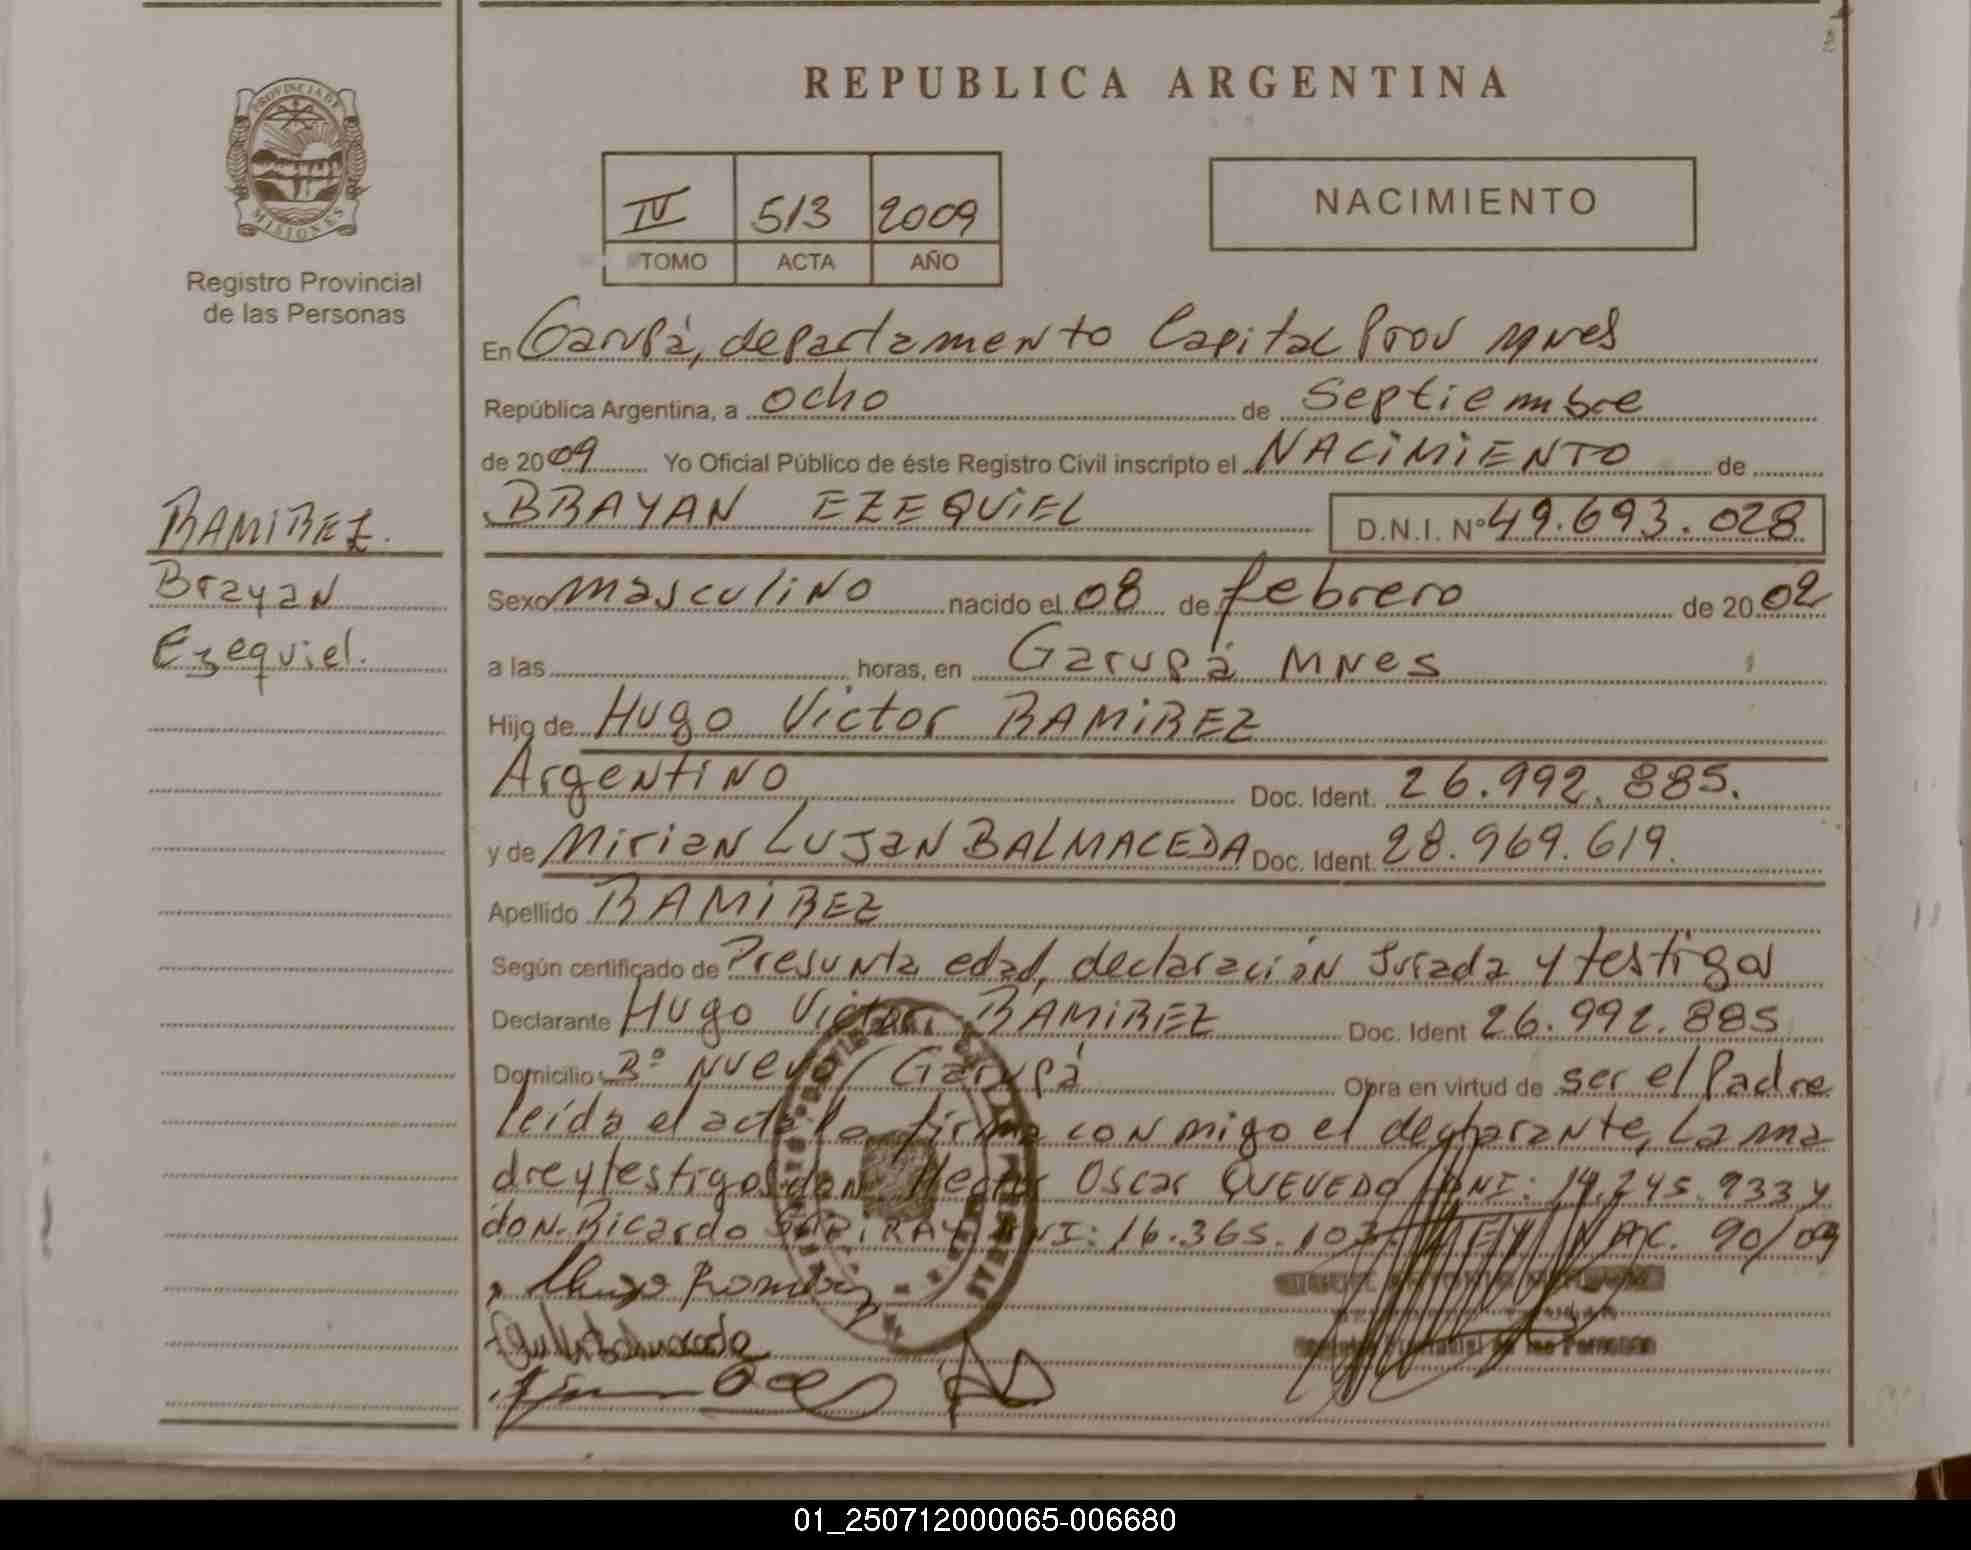 REPUBLICA ARGENTINA
PROVINCIA DE
MISIONES
Registro Provincial
de las Personas
IV 513 2009
TOMO ACTA AÑO
NACIMIENTO
En Garupá, departamento Capital Prov Mnes
República Argentina, a ocho de Septiembre
de 2009 Yo Oficial Público de éste Registro Civil inscripto el NACIMIENTO de
BRAYAN EZEQUIEL D.N.I. Nº 49.693.028
RAMIREZ.
Brayan
Ezequiel.
Sexo masculino nacido el 08 de febrero de 2002
a las horas, en Garupá Mnes
Hijo de Hugo Victor RAMIREZ
Argentino Doc. Ident. 26.992.885.
y de Mirian Lujan BALMACEDA Doc. Ident. 28.969.619.
Apellido RAMIREZ
Según certificado de Presunta edad, declaración Jurada y testigos
Declarante Hugo Victor RAMIREZ Doc. Ident 26.992.885
Domicilio Bº Nuevo Garupá Obra en virtud de ser el Padre
leída el acta la firma conmigo el declarante, la ma
dre y testigos don Hector Oscar QUEVEDO DNI: 14.245.933 y
don Ricardo DNI: 16.365.103. LEY NAC. 90/09
Hugo Ramirez
Balmaceda
Registro Provincial de las Personas
01_250712000065-006680